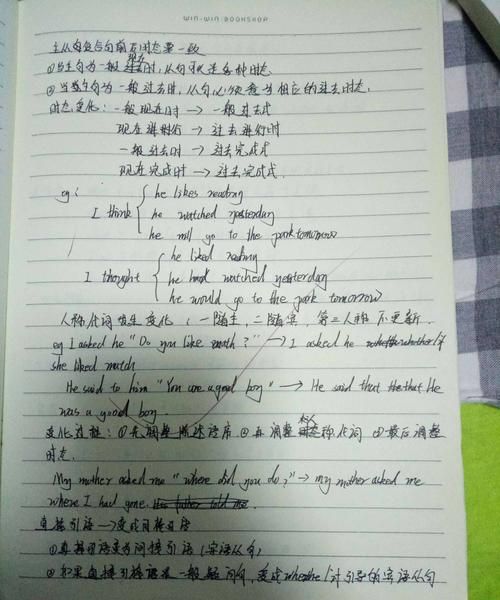 WIN-WIN BOOKSHOP
主从句复合句前后时态要一致
①当主句为一般现在时,从句可以是各种时态.
②当主句为一般过去时,从句必须变为相应的过去时态.
时态变化:一般现在时 → 一般过去式
现在进行时 → 过去进行时
一般过去时 → 过去完成式
现在完成时 → 过去完成式.
eg: he likes reading
I think he watched yesterday
he will go to the park tomorrow
he liked reading
I thought he had watched yesterday
he would go to the park tomorrow
人称代词发生变化:一随主,二随宾,第三人称不更新.
eg I asked he "Do you like math?" → I asked he whether/if
she liked match
He said to him "You are a good boy" → He said that he
was a good boy.
变化过程:①先调整陈述语序 ②再调整人称代词 ③最后调整
时态.
My mother asked me "where did you do?" → my mother asked me
where I had gone.
直接引语 → 变成间接引语
①直接引语变为间接引语(宾语从句)
②如果直接引语是一般疑问句,变成whether/if引导的宾语从句